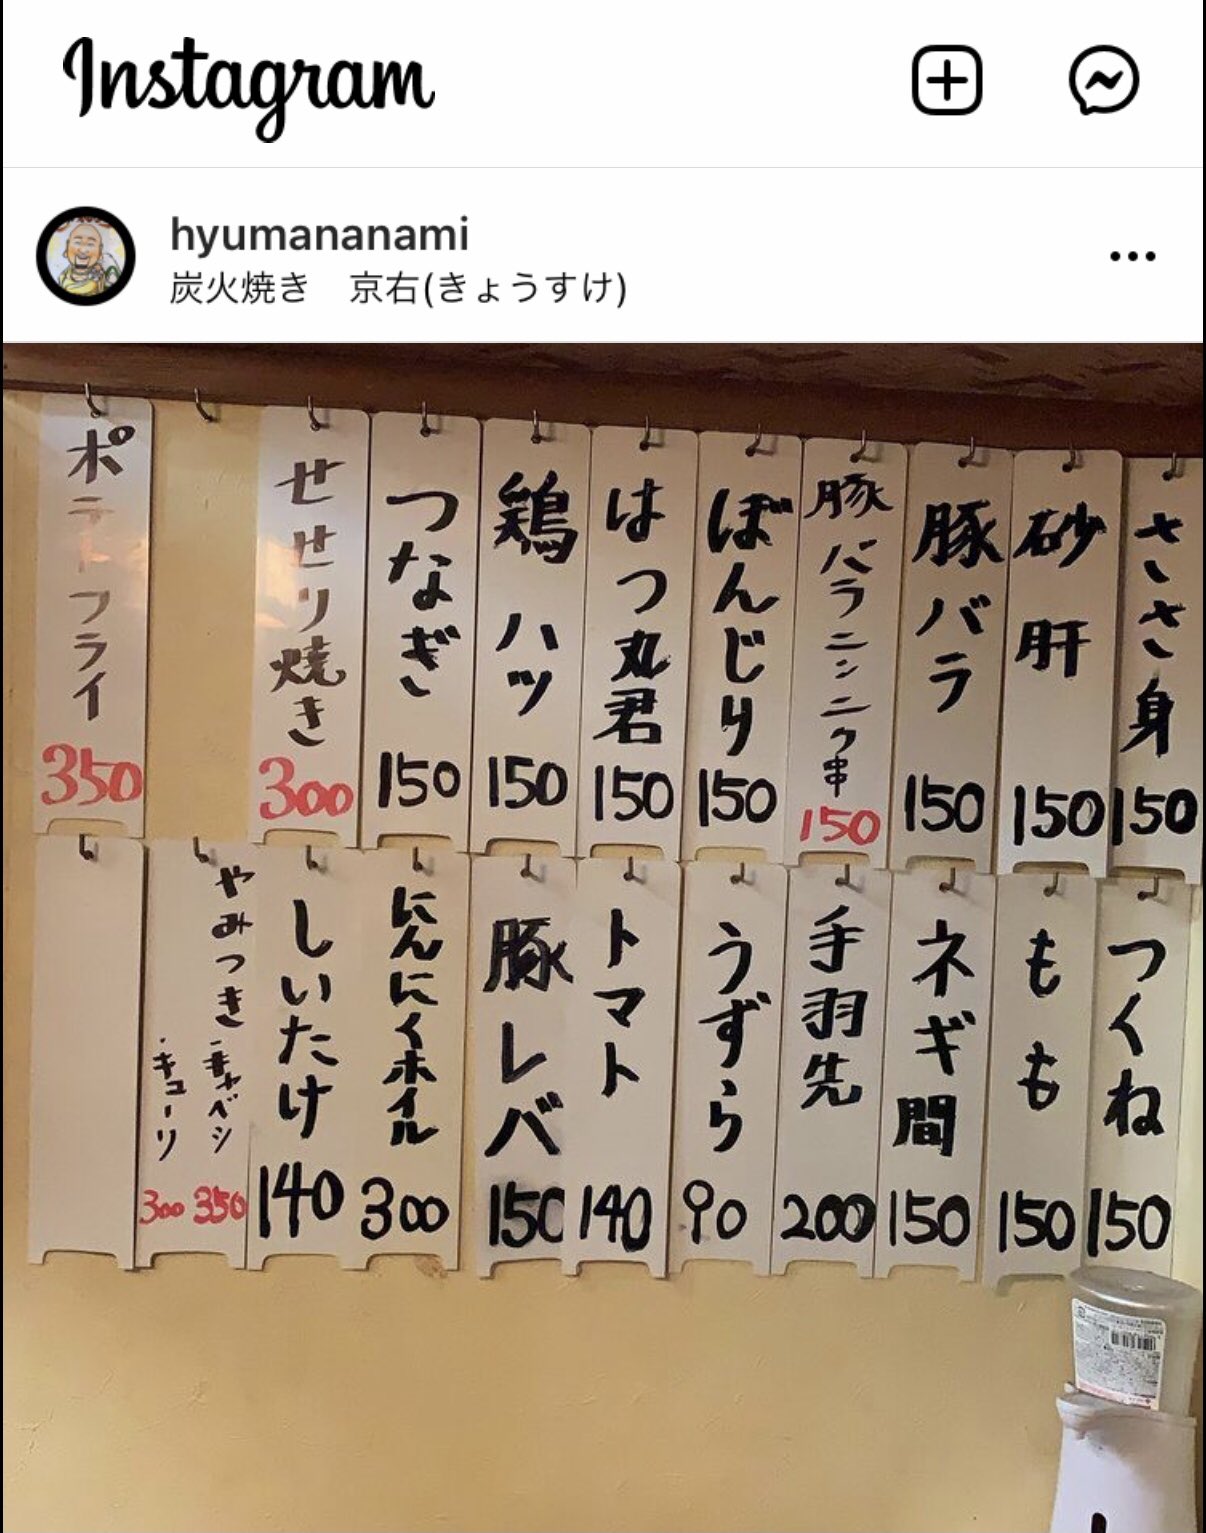 Instagram
hyumananami
炭火焼き 京右(きょうすけ)
ささ身 150
砂肝 150
豚バラ 150
豚バラニンニク串 150
ぼんじり 150
はつ丸君 150
鶏ハツ 150
つなぎ 150
せせり焼き 300
ポテトフライ 350
つくね 150
もも 150
ネギ間 150
手羽先 200
うずら 90
トマト 140
豚レバ 150
にんにくホイル 300
しいたけ 140
やみつき・キャベシ 350
・キューリ 300